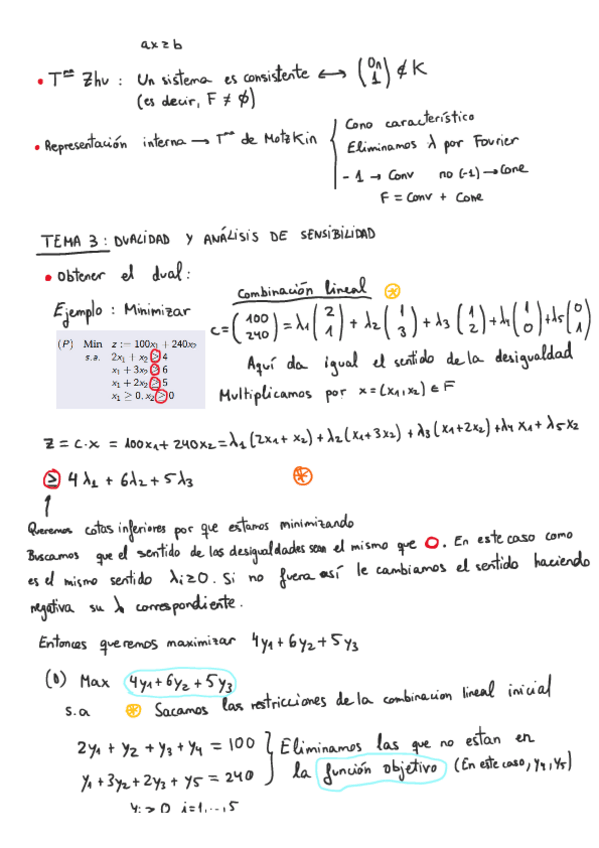 ax ≥ b
• Tᵐᵃ Zhu : Un sistema es consistente ⟷ (0n 1) ∉ K
(es decir, F ≠ ∅)
• Representación interna → Tᵐᵃ de Motzkin
Cono característico
Eliminamos λ por Fourier
- 1 → Conv no (-1) → Cone
F = Conv + Cone
TEMA 3 : DUALIDAD Y ANÁLISIS DE SENSIBILIDAD
• Obtener el dual :
Combinación lineal
Ejemplo : Minimizar
c = (100 240) = λ1 (2 1) + λ2 (1 3) + λ3 (1 2) + λ4 (1 0) + λ5 (0 1)
(P) Min z := 100x1 + 240x2
s.a. 2x1 + x2 ≥ 4
x1 + 3x2 ≥ 6
x1 + 2x2 ≥ 5
x1 ≥ 0, x2 ≥ 0
Aquí da igual el sentido de la desigualdad
Multiplicamos por x = (x1, x2) ∈ F
z = c·x = 100x1 + 240x2 = λ1 (2x1 + x2) + λ2 (x1 + 3x2) + λ3 (x1 + 2x2) + λ4 x1 + λ5 x2
≥ 4λ1 + 6λ2 + 5λ3
Queremos cotas inferiores por que estamos minimizando
Buscamos que el sentido de las desigualdades sean el mismo que O. En este caso como
es el mismo sentido λi ≥ 0. Si no fuera así le cambiamos el sentido haciendo
negativa su λ correspondiente.
Entonces queremos maximizar 4y1 + 6y2 + 5y3
(D) Max 4y1 + 6y2 + 5y3
s.a Sacamos las restricciones de la combinacion lineal inicial
2y1 + y2 + y3 + y4 = 100
y1 + 3y2 + 2y3 + y5 = 240
Eliminamos las que no estan en
la función objetivo (En este caso, y4, y5)
yi ≥ 0 i=1,..,5